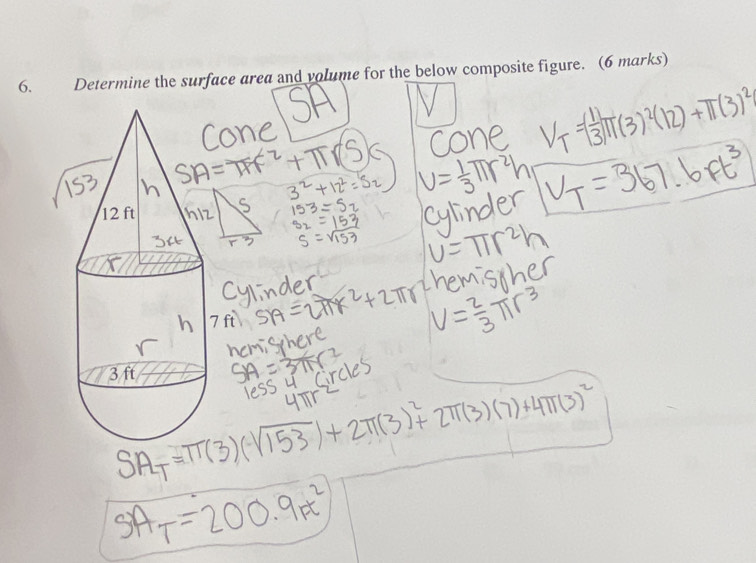 6. Determine the surface area and volume for the below composite figure. (6 marks)
SA
Cone
SA = πr² + πrs
3² + 12² = S2
153 = S2
S2 = 153
S = √153
h12
S
r 3
√153
h
12 ft
3ft
r
h
7 ft
r
3 ft
Cylinder
SA = 2πr² + 2πrh
hemisphere
SA = 3πr²
less 4 circles
4πr²
V
cone
V = 1/3 πr²h
cylinder
V = πr²h
hemispher
V = 2/3 πr³
V_T = (1/3)π(3)²(12) + π(3)²(
V_T = 367.6 ft³
SA_T = π(3)(√153) + 2π(3)² + 2π(3)(7) + 4π(3)²
SA_T = 200.9 ft²